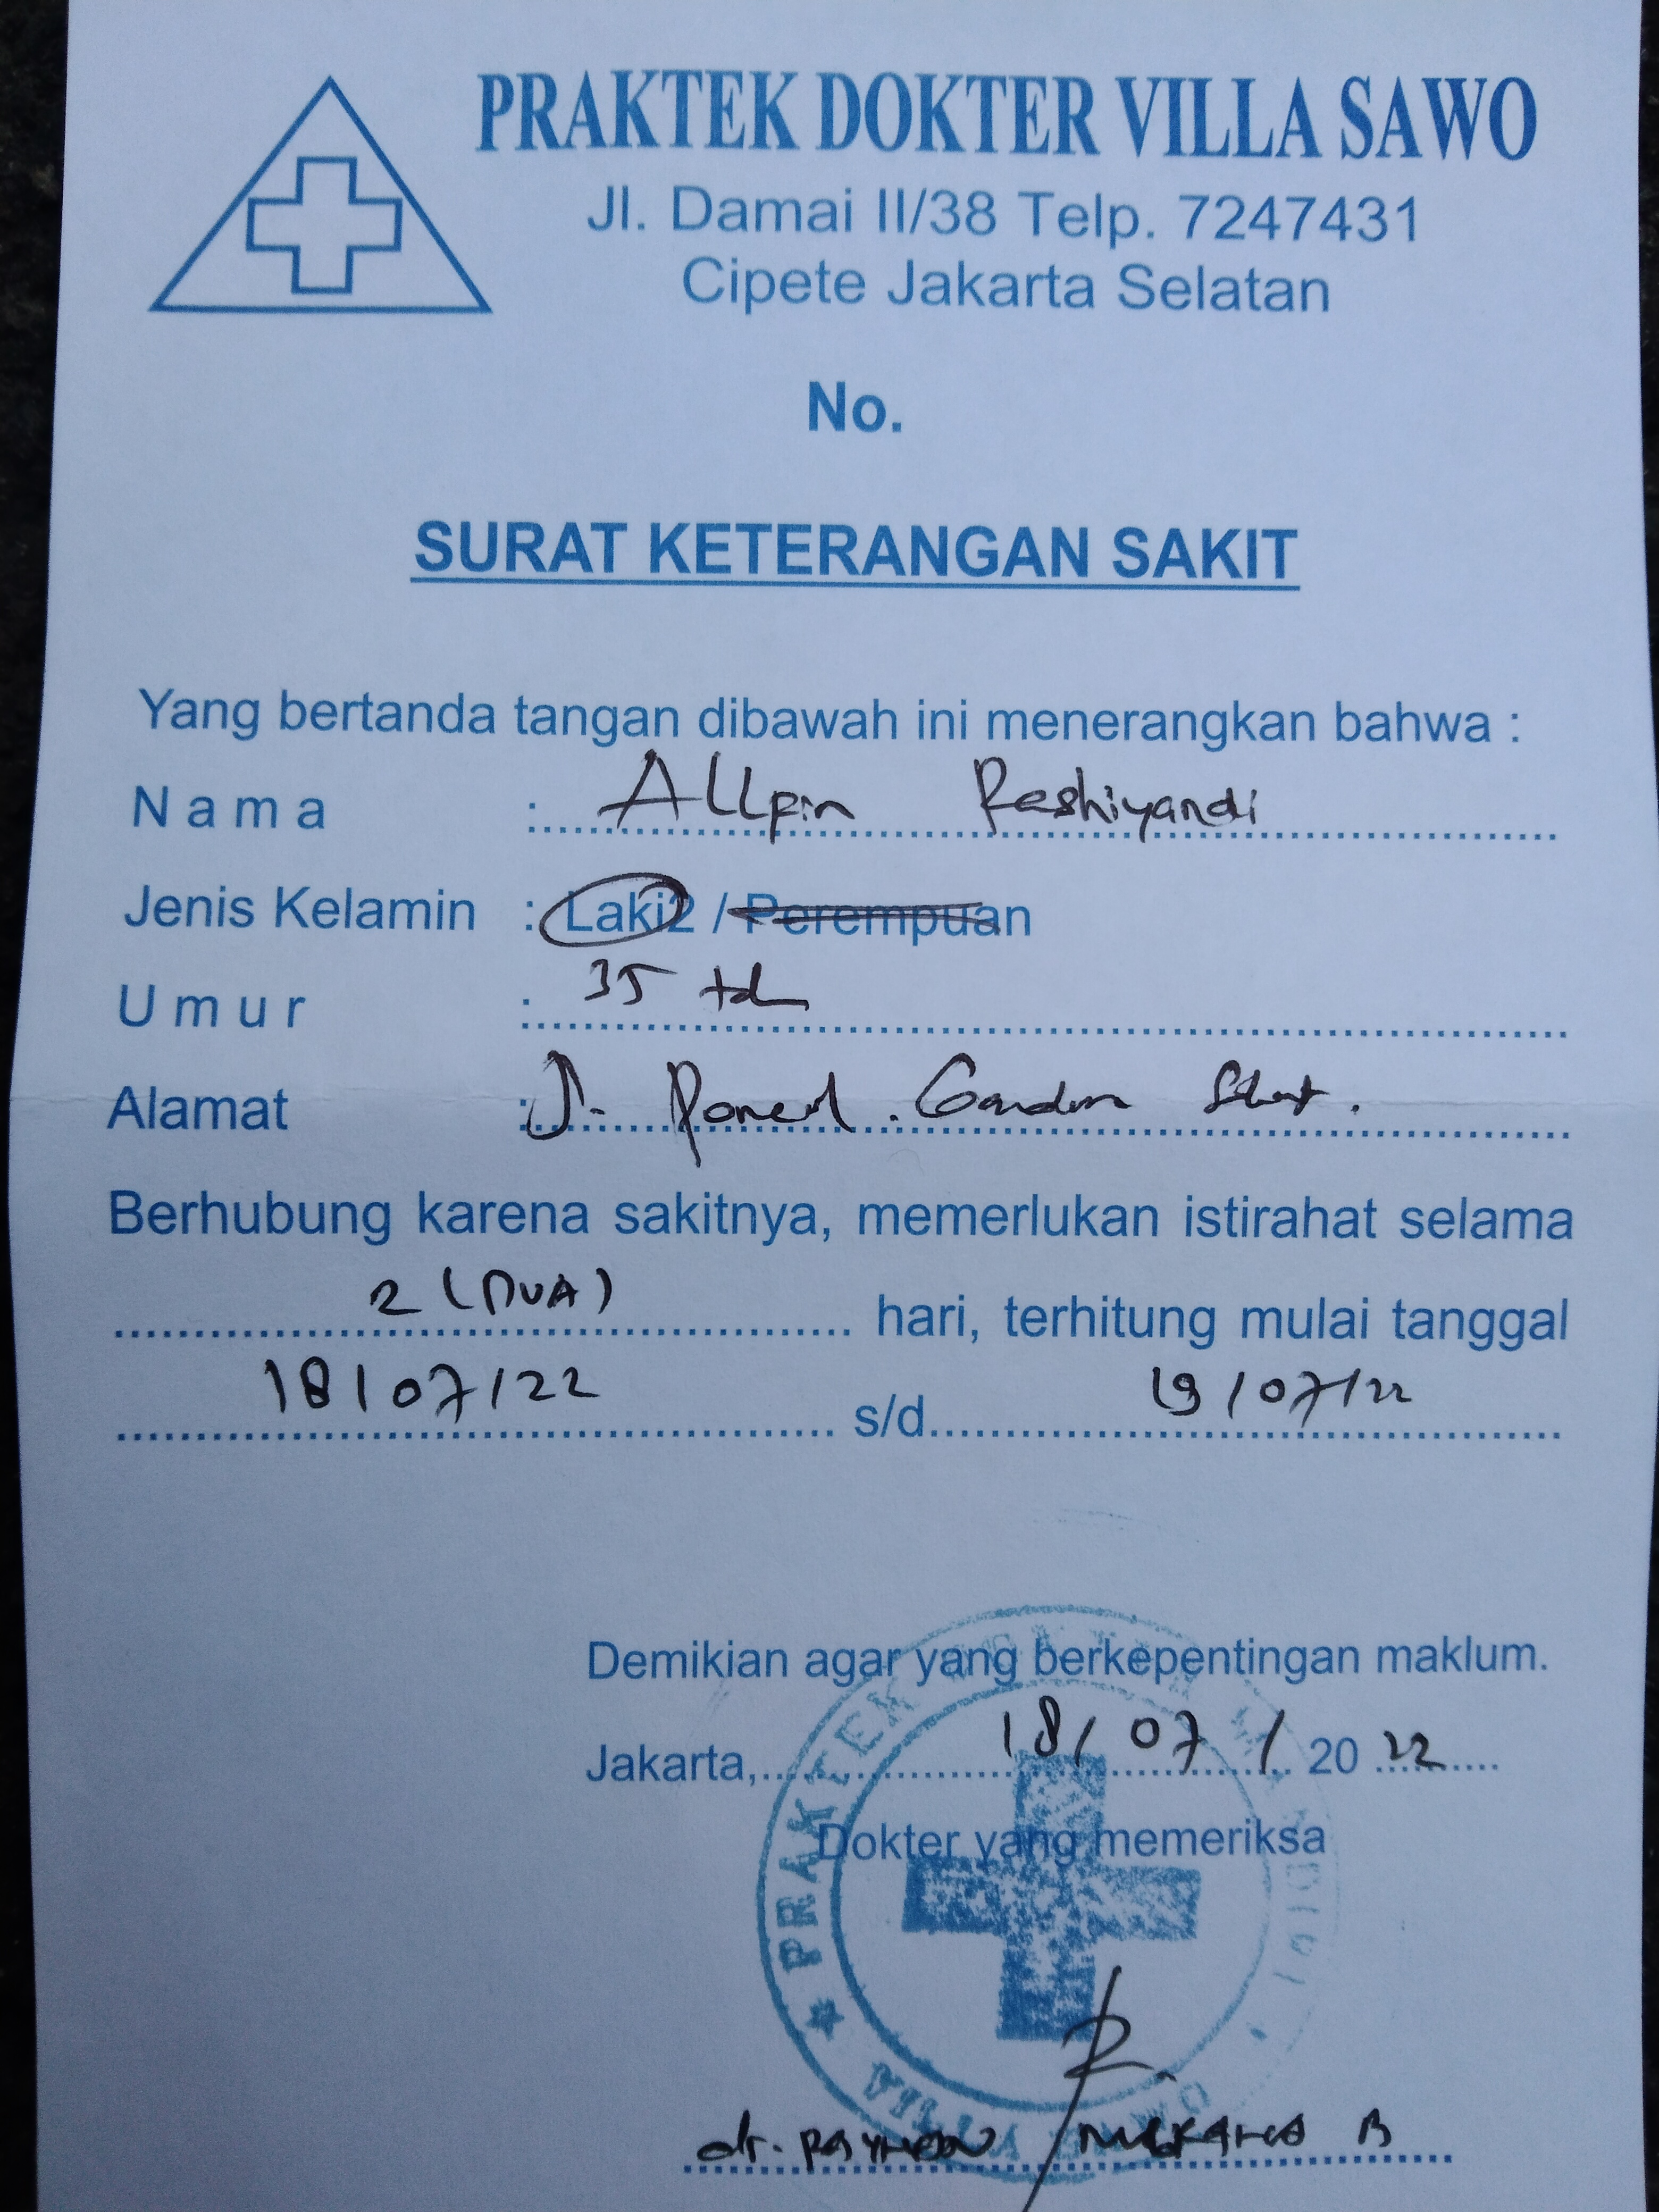 PRAKTEK DOKTER VILLA SAWO
Jl. Damai II/38 Telp. 7247431
Cipete Jakarta Selatan
No.
SURAT KETERANGAN SAKIT
Yang bertanda tangan dibawah ini menerangkan bahwa :
Nama : Allpin Reshiyandi
Jenis Kelamin : Laki2 / Perempuan
Umur : 35 th
Alamat : Jl.
Berhubung karena sakitnya, memerlukan istirahat selama
2 (DUA) hari, terhitung mulai tanggal
18/07/22 s/d 19/07/22
Demikian agar yang berkepentingan maklum.
Jakarta, 18/07/2022
Dokter yang memeriksa
PRAKTEK
VILLA SAWO
dr.